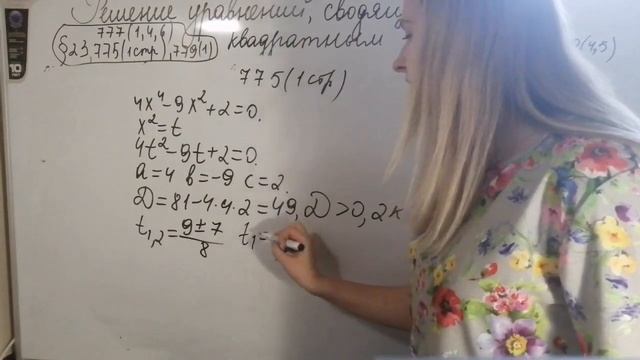 Решение уравнений, сводящ
777(1,4,6)
§23, 775(1стр), 779(1)
квадратным
775(1стр)
4x⁴-9x²+2=0.
x²=t
4t²-9t+2=0.
a=4 b=-9 c=2.
D=81-4·4·2=49, D>0, 2к
t₁,₂=(9±7)/8 t₁=